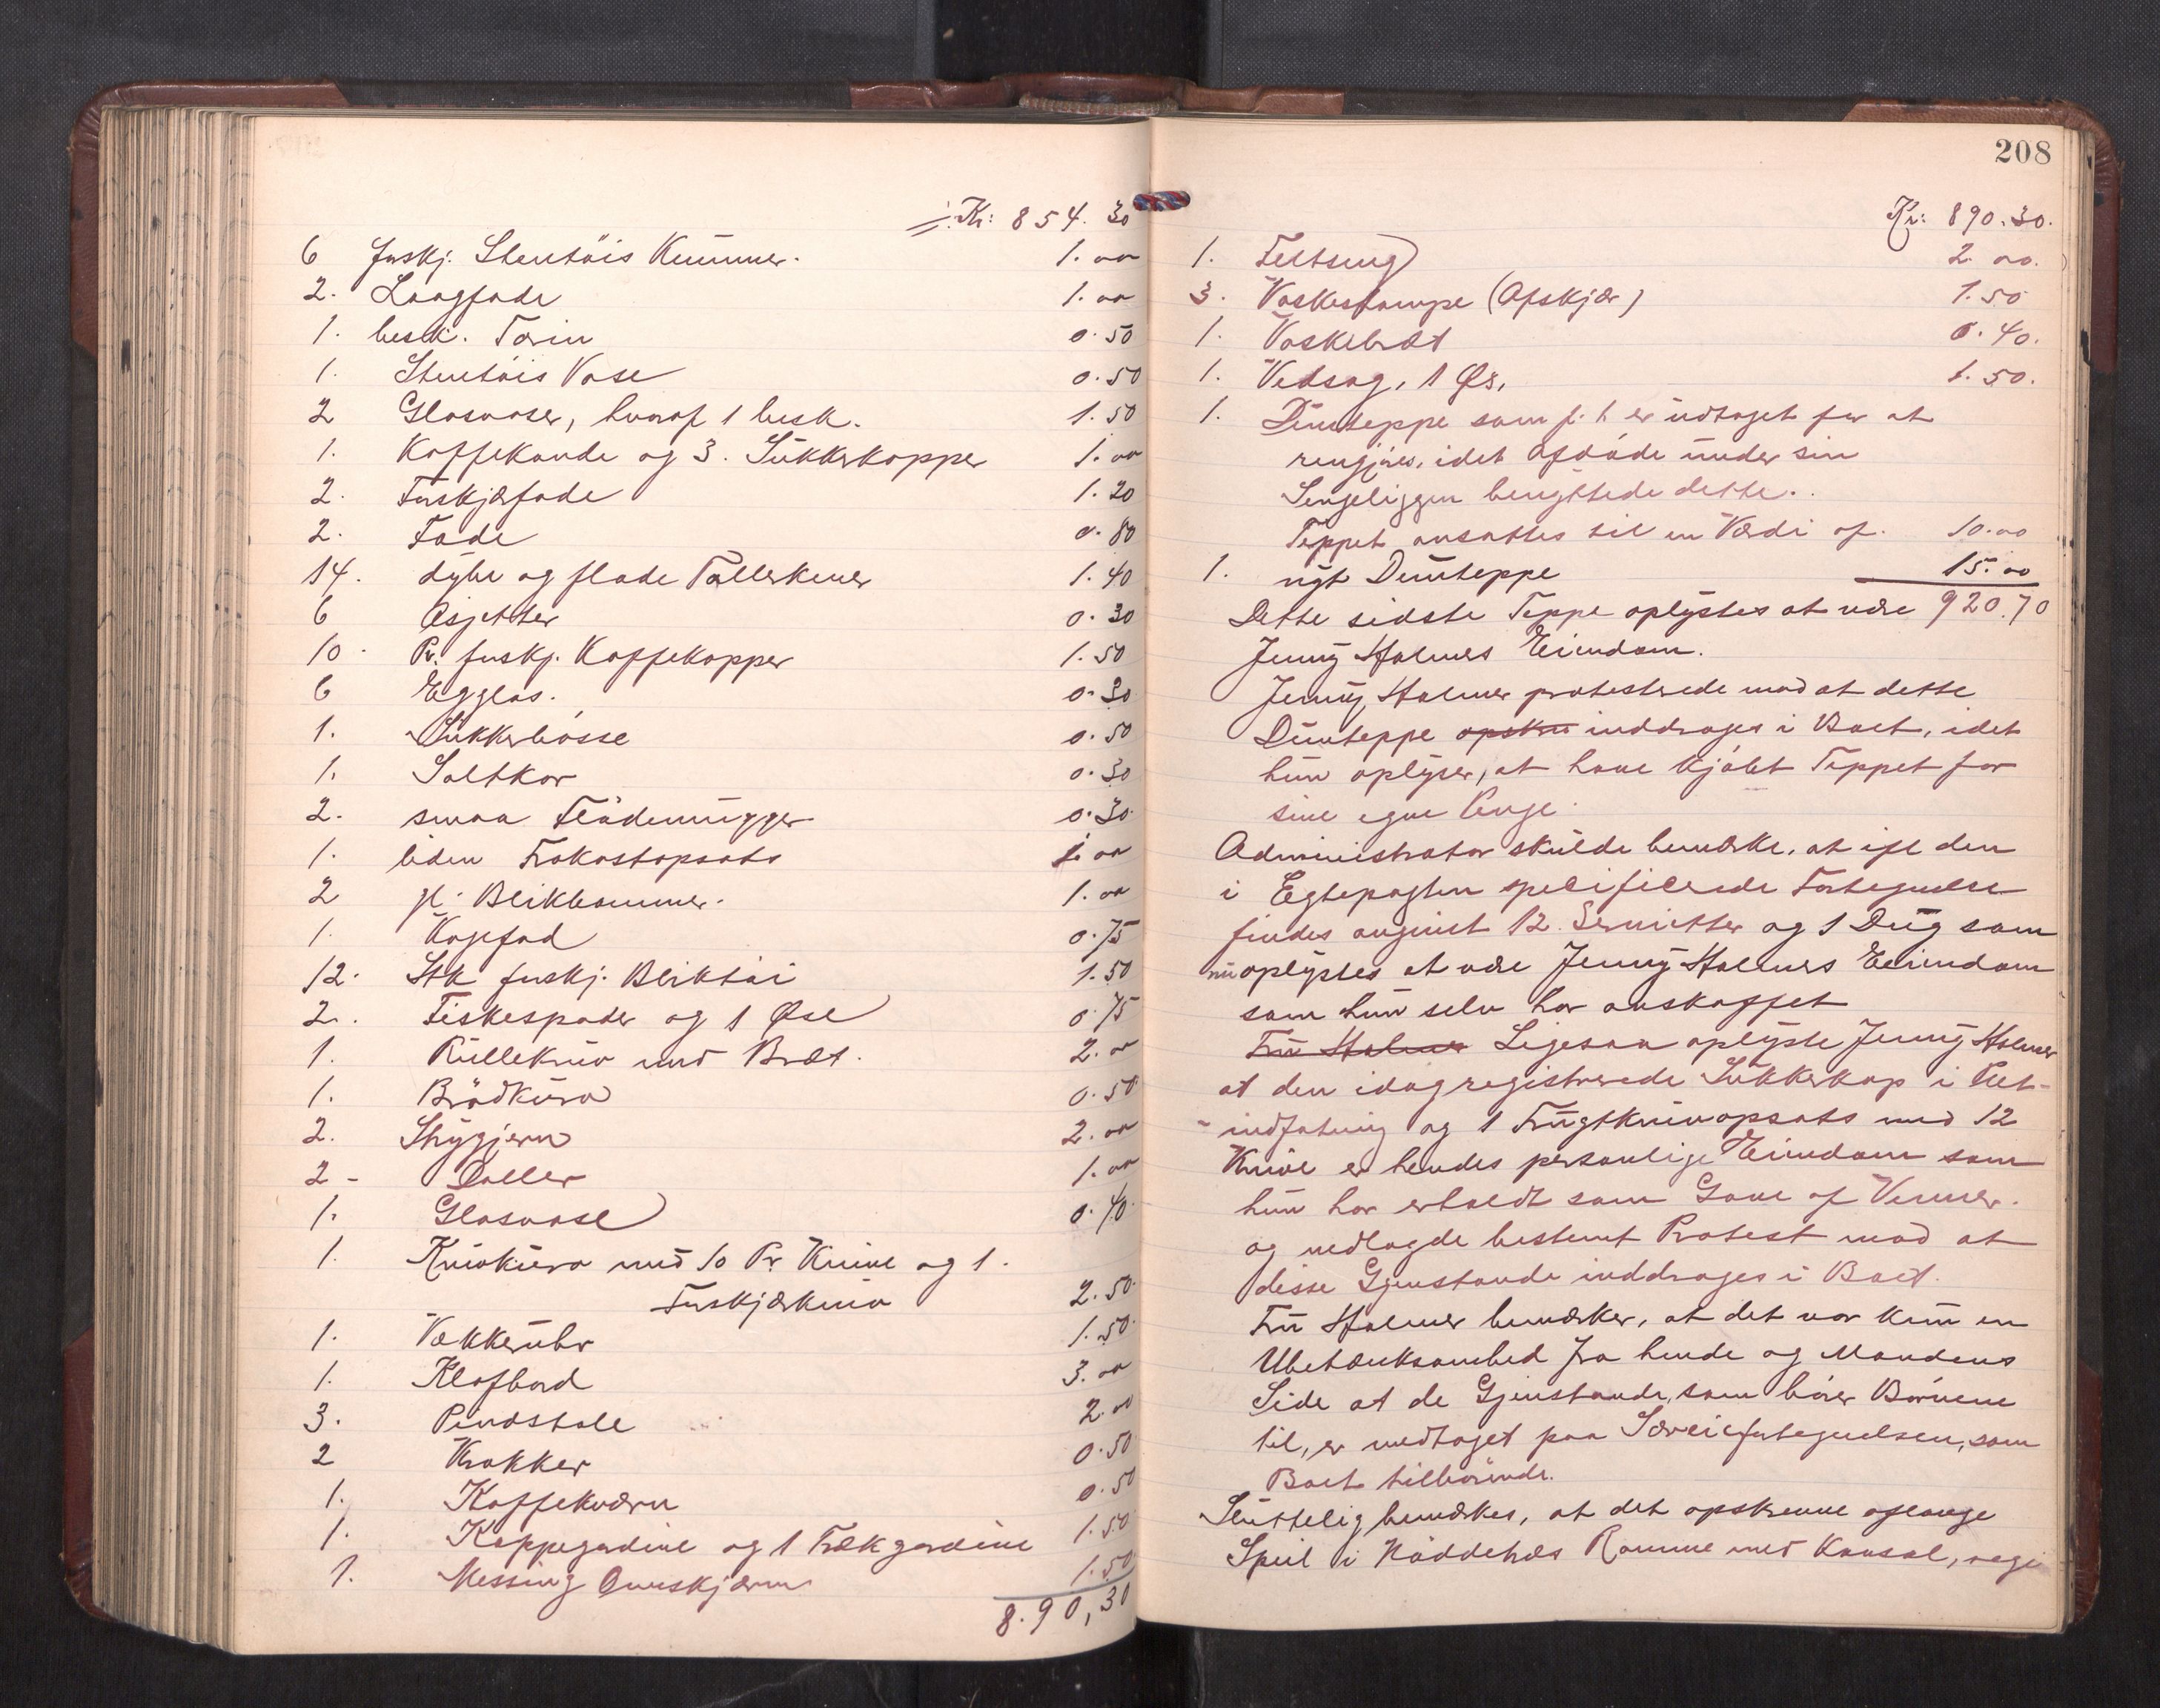 Kr: 854. 30
6 forskj. Stentöis Kummer. 1. 00
2. Laagfade 1. 00
1. besk. Terin 0. 50
1. Stentöis Vase 0. 50
2 Glasvaser, hvoraf 1 besk. 1. 50
1. Kaffekande og 3. Sukkerkopper 1. 00
2. Forskjærfade 1. 20
2. Fade 0. 80
14. dybe og flade Tallerkener 1. 40
6 Asjetter 0. 30
10. Pr. forskj. Kaffekopper 1. 50
6 Egglas. 0. 30
1. Sukkerbösse 0. 50
1. Saltkar 0. 30
2. smaa Flödemugger 0. 30
1. liden Frokostopsats 1. 00
2 gl. Blikkommer. 1. 00
1. Kagefad 0. 75
12. Stk forskj. Bliktöi 1. 50
2. Fiskespader og 1 Øse 0. 75
1. Rullekniv med Bræt. 2. 00
1. Brödkurv 0. 50
2. Strygjern 2. 00
2 - Baller 1. 00
1. Glasvase 0. 40
1. Knivkurv med 10 Pr Knive og 1.
Forskjærkniv 2. 50
1. Vækkeruhr 1. 50
1. Klafbord 3. 00
3. Pindstole 2. 00
2 Krakker 0. 50
1. Kaffekværn 0. 50
1. Kappegardine og 1 Trækgardine 1. 50
1. Messing Ovnskjærm 1. 50
8. 90, 30
208
Kr: 890. 30.
1. Feltseng 2. 00.
3. Vaskestampe (Afskjær) 1. 50
1. Vaskebræt 0. 40.
1. Vedsag, 1 Øs, 1. 50.
1. Dunteppe som f. t. er udtaget for at
rengjöres, idet Afdöde under sin
Sengeliggen benyttede dette.
Teppet ansattes til en Værdi af. 10. 00
1. nyt Dunteppe 15. 00
Dette sidste Teppe oplystes at være 920. 70
Jenny Holmers Eiendom.
Jenny Holmer protesterede mod at dette
Dunteppe opskri inddrages i Boet, idet
hun oplyser, at have kjöbt Teppet for
sine egne Penge.
Administrator skulde bemærke, at ifl den
i Egtepagten spesifiserede Fortegnelse
findes angivet 12 Servietter og 1 Dug som
nu oplystes at være Jenny Holmers Eiendom
som hun selv har anskaffet
Fru Holmer Ligesaa oplyste Jenny Holmer
at den idag registrerede Sukkerkop i Plet-
- indfatning og 1 Frugtknivopsats med 12
Knive er hendes personlige Eiendom som
hun har erholdt som Gave af Venner.
og nedlagde bestemt Protest mod at
disse Gjenstande inddrages i Boet.
Fru Holmer bemærker, at det var kun en
Ubetænksomhed fra hende og Mandens
Side at de Gjenstande, som hörer Börnene
til, er medtaget paa Særeiefortegnelsen, som
Boet tilhörende.
Sluttelig bemærkes, at det opskrevne aflange
Speil i Nöddetræs Ramme med Konsol, regi